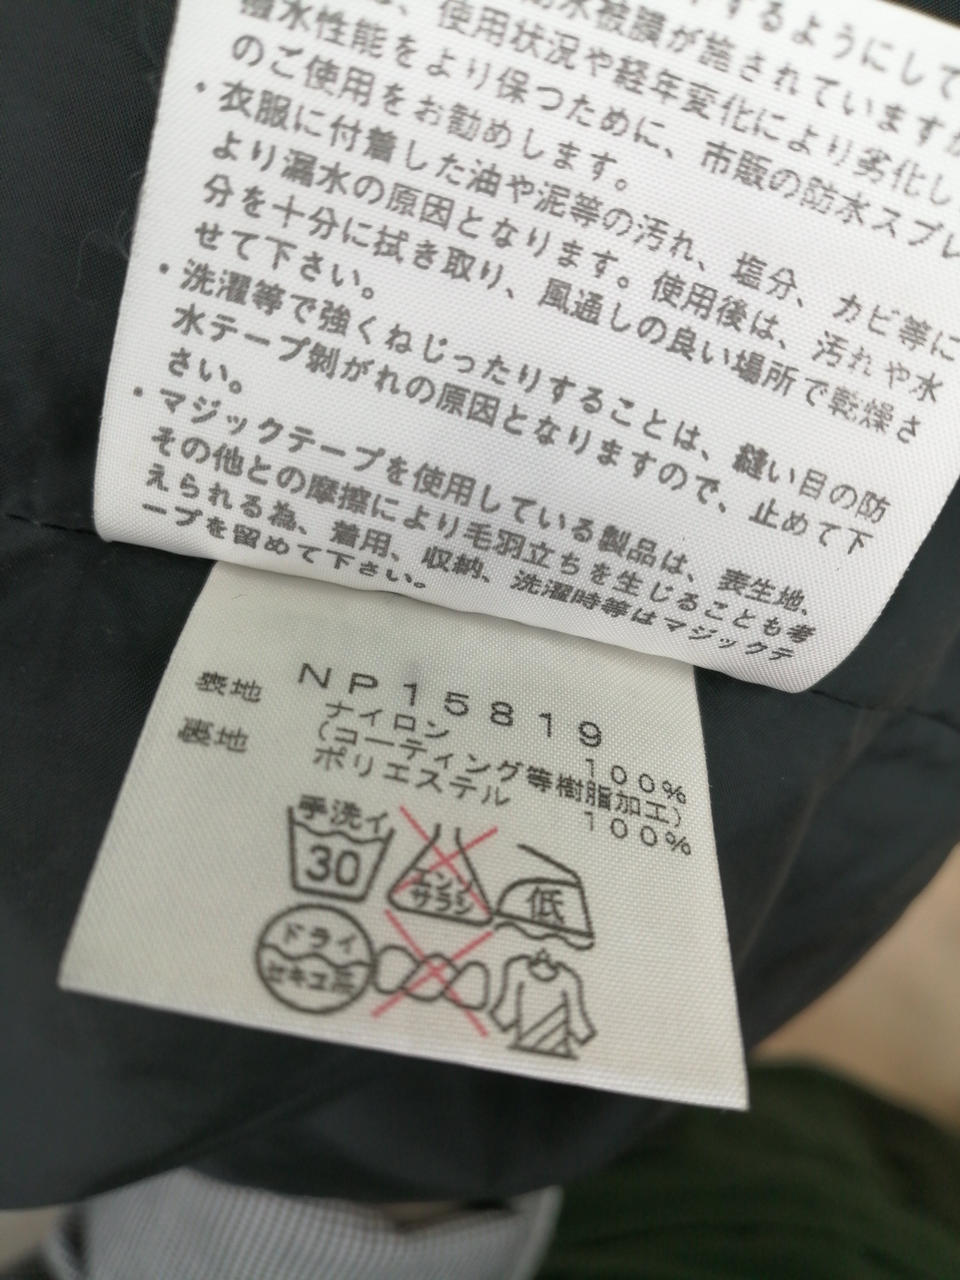 するようにして
防水被膜が施されていますが
、使用状況や経年変化により劣化し
撥水性能をより保つために、市販の防水スプレ
のご使用をお勧めします。
・衣服に付着した油や泥等の汚れ、塩分、カビ等に
より漏水の原因となります。使用後は、汚れや水
分を十分に拭き取り、風通しの良い場所で乾燥さ
せて下さい。
・洗濯等で強くねじったりすることは、縫い目の防
水テープ剥がれの原因となりますので、止めて下
さい。
・マジックテープを使用している製品は、表生地、
その他との摩擦により毛羽立ちを生じることも考
えられる為、着用、収納、洗濯時等はマジックテ
ープを留めて下さい。
NP15819
表地 ナイロン 100%
(コーティング等樹脂加工)
裏地 ポリエステル 100%
手洗イ
30
エンソ
サラシ
低
ドライ
セキユ系